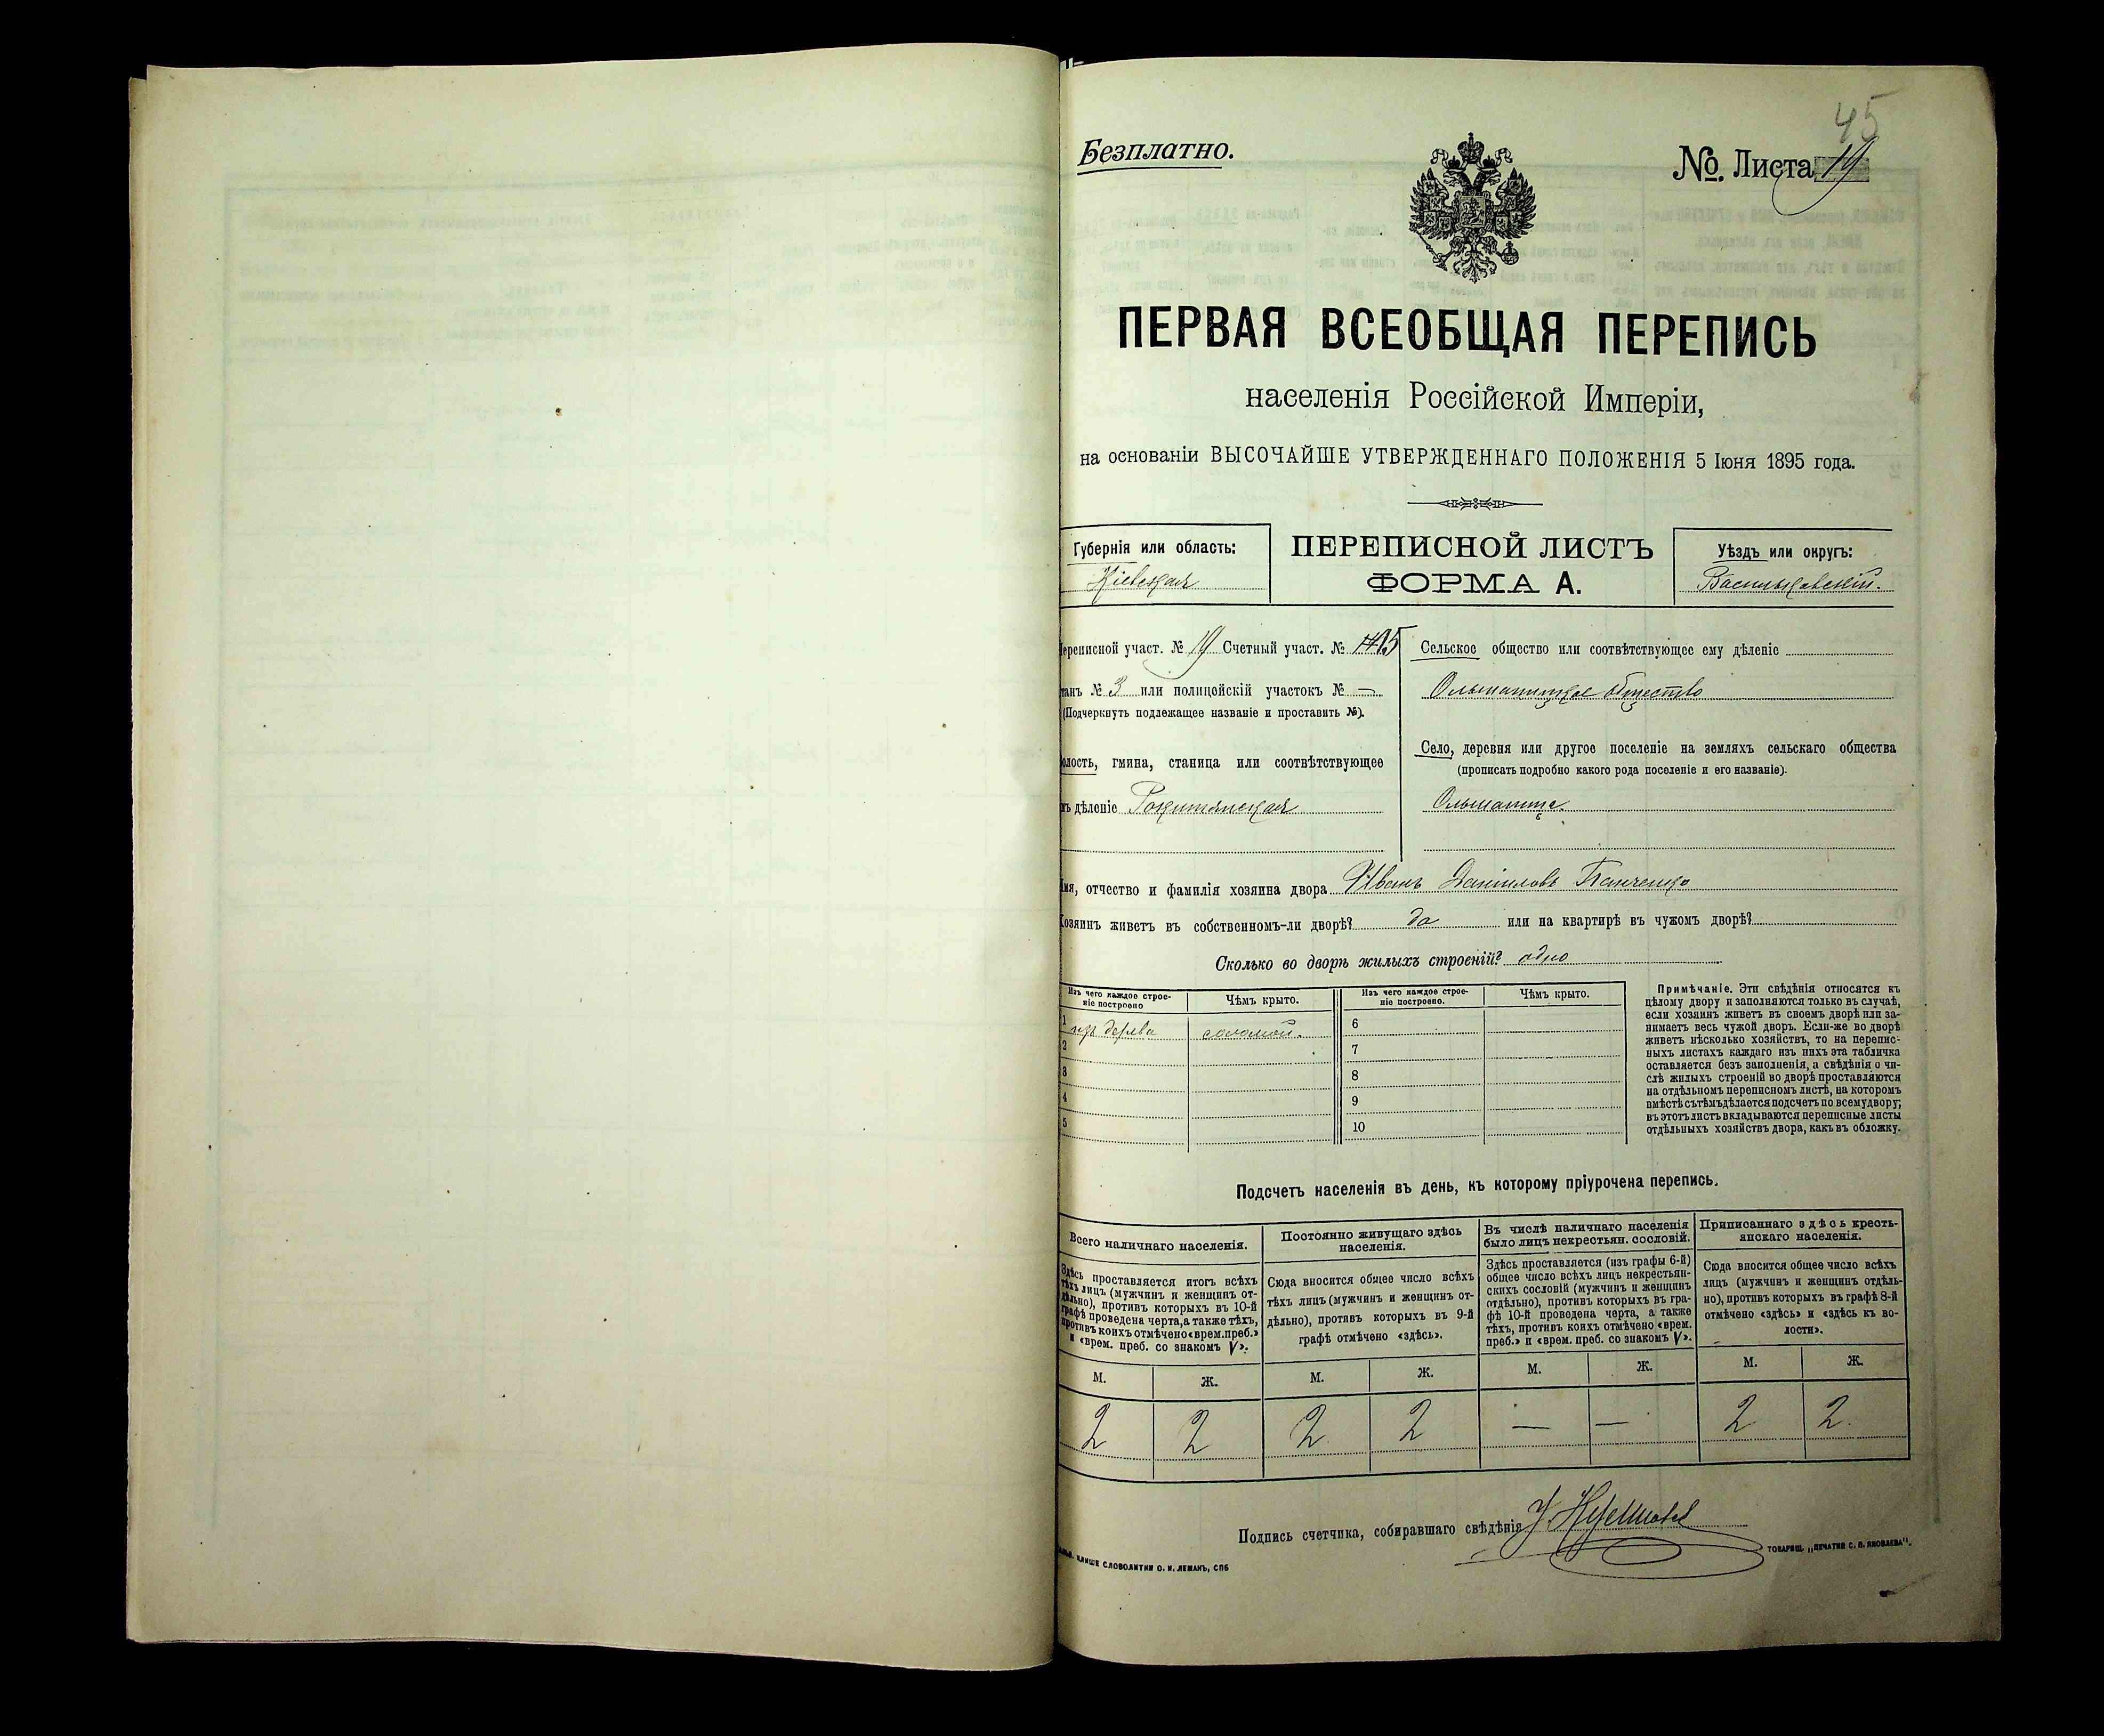 45
Безплатно.
№. Листа 19
ПЕРВАЯ ВСЕОБЩАЯ ПЕРЕПИСЬ
населенія Россійской Имперіи,
на основаніи ВЫСОЧАЙШЕ УТВЕРЖДЕННАГО ПОЛОЖЕНІЯ 5 Іюня 1895 года.
Губернія или область:
Кіевская
ПЕРЕПИСНОЙ ЛИСТЪ
ФОРМА А.
Уѣздъ или округъ:
Васильковскій.
Переписной участ. № 19 Счетный участ. №
танъ № 3 или полицейскій участокъ № —
(Подчеркнуть подлежащее названіе и проставить №).
олость, гмина, станица или соотвѣтствующее
мъ дѣленіе Рокитянская
Сельское общество или соотвѣтствующее ему дѣленіе
Ольшаницкое общество
Село, деревня или другое поселеніе на земляхъ сельскаго общества
(прописать подробно какого рода поселеніе и его названіе).
Ольшаница
Имя, отчество и фамилія хозяина двора Иванъ Даніиловъ Панченко
Хозяинъ живетъ въ собственномъ-ли дворѣ? да или на квартирѣ въ чужомъ дворѣ?
Сколько во дворѣ жилыхъ строеній? одно
Изъ чего каждое строе-
ніе построено
Чѣмъ крыто.
Изъ чего каждое строе-
ніе построено.
Чѣмъ крыто.
1 изъ дерева соломой. 6
2 7
3 8
4 9
5 10
Примѣчаніе. Эти свѣдѣнія относятся къ
цѣлому двору и заполняются только въ случаѣ,
если хозяинъ живетъ въ своемъ дворѣ или за-
нимаетъ весь чужой дворъ. Если-же во дворѣ
живетъ нѣсколько хозяйствъ, то на перепис-
ныхъ листахъ каждаго изъ нихъ эта табличка
оставляется безъ заполненія, а свѣдѣнія о чи-
слѣ жилыхъ строеній во дворѣ проставляются
на отдѣльномъ переписномъ листѣ, на которомъ
вмѣстѣ съ тѣмъ дѣлается подсчетъ по всему двору;
въ этотъ листъ вкладываются переписные листы
отдѣльныхъ хозяйствъ двора, какъ въ обложку.
Подсчетъ населенія въ день, къ которому пріурочена перепись.
Всего наличнаго населенія.
Здѣсь проставляется итогъ всѣхъ
тѣхъ лицъ (мужчинъ и женщинъ от-
дѣльно), противъ которыхъ въ 10-й
графѣ проведена черта, а также тѣхъ,
противъ коихъ отмѣчено «врем. преб.»
и «врем. преб. со знакомъ V».
Постоянно живущаго здѣсь
населенія.
Сюда вносится общее число всѣхъ
тѣхъ лицъ (мужчинъ и женщинъ от-
дѣльно), противъ которыхъ въ 9-й
графѣ отмѣчено «здѣсь».
Въ числѣ наличнаго населенія
было лицъ некрестьян. сословій.
Здѣсь проставляется (изъ графы 6-й)
общее число всѣхъ лицъ некрестьян-
скихъ сословій (мужчинъ и женщинъ
отдѣльно), противъ которыхъ въ гра-
фѣ 10-й проведена черта, а также
тѣхъ, противъ коихъ отмѣчено «врем.
преб.» и «врем. преб. со знакомъ V».
Приписаннаго здѣсь кресть-
янскаго населенія.
Сюда вносится общее число всѣхъ
лицъ (мужчинъ и женщинъ отдѣль-
но), противъ которыхъ въ графѣ 8-й
отмѣчено «здѣсь» и «здѣсь къ во-
лости».
М. Ж. М. Ж. М. Ж. М. Ж.
2 2 2 2 — — 2 2.
Подпись счетчика, собиравшаго свѣдѣнія
клише словолитни О. И. Леманъ, СПБ
ТОВАРИЩ. „ПЕЧАТНЯ С. П. ЯКОВЛЕВА".